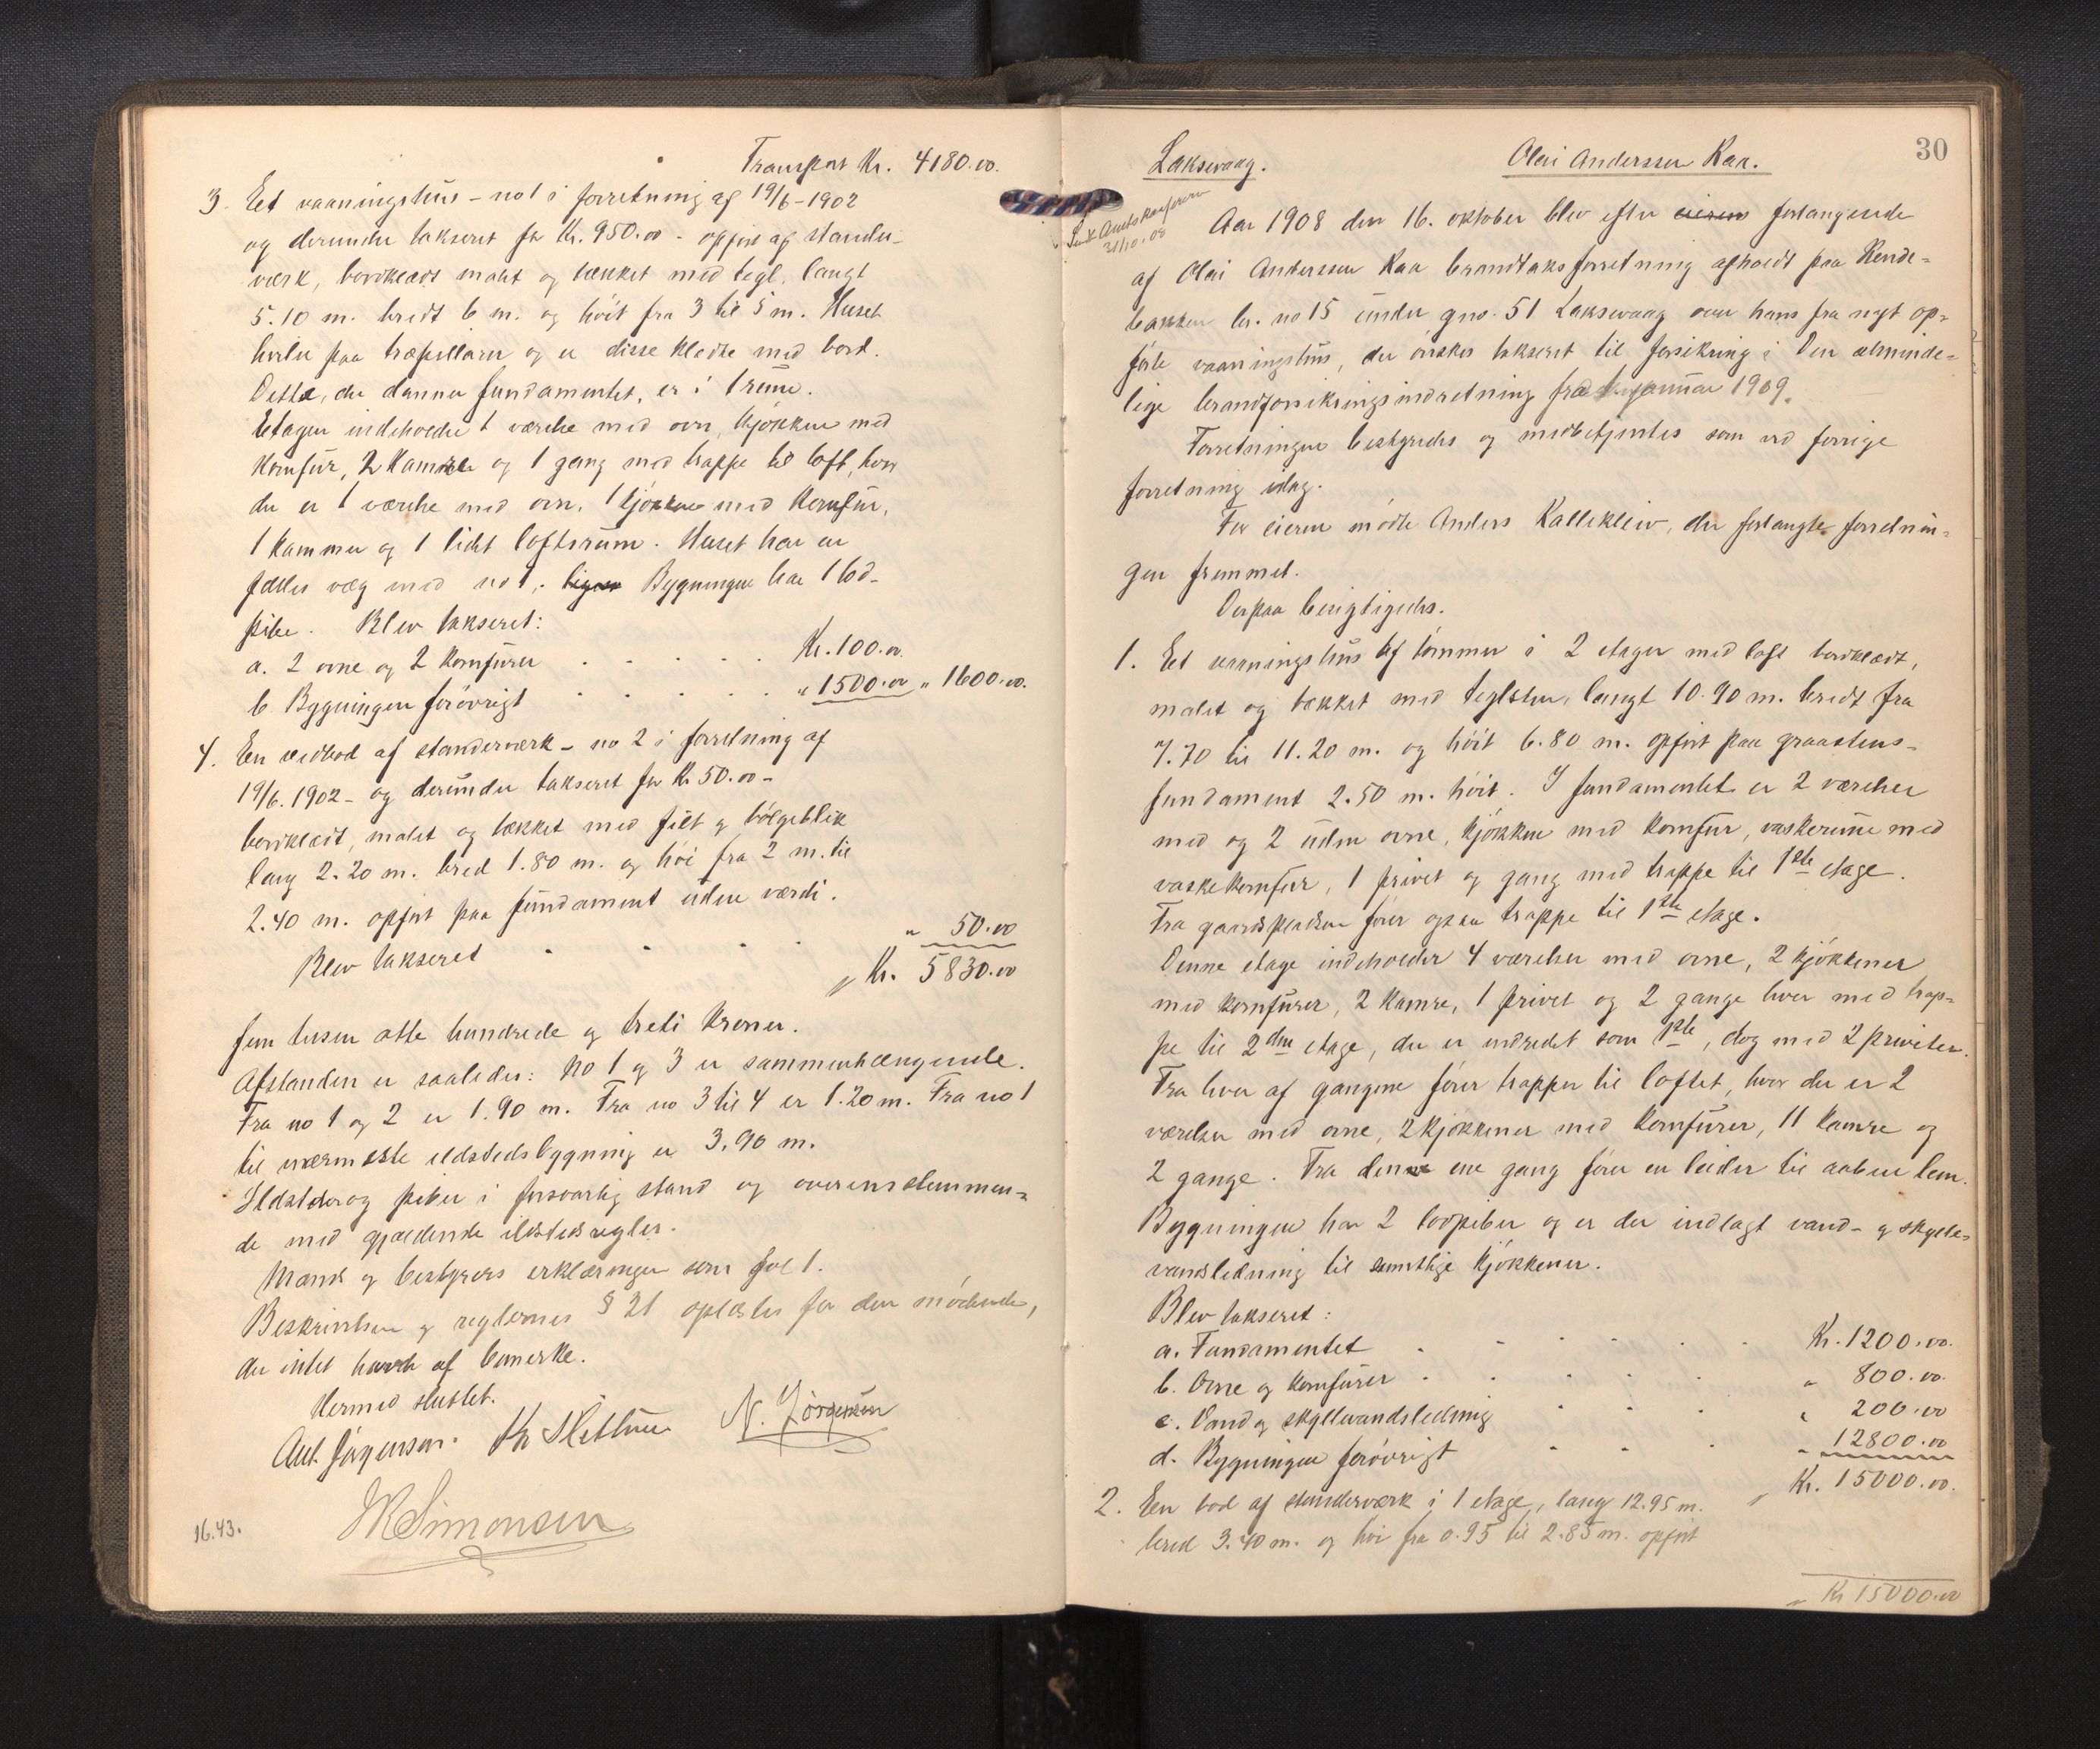 Transport Kr. 4180.00.
3. Eet vaaningshus – no 1 i forretning af 19/6 – 1902
og derunder takseret for Kr. 950.00 – opført af stander-
værk, bordklædt malet og tækket med tegl, langt
5.10 m. bredt 6 m. og höit fra 3 til 5 m. Huset
hviler paa træpillarer og er disse klædte med bord.
Dette, der danner fundamentet, er i 1 rum.
Etagen indeholder 1 værelse med ovn, kjökken med
komfur, 2 kamre og 1 gang med trappe til loft, hvor
der er 1 værelse med ovn, 1 kjökken med komfur,
1 kammer og 1 lidet loftsrum. Huset har en
fælles væg med no 1. Bygningen har 1 lod-
pibe. Blev takseret:
a. 2 ovne og 2 komfurer . . . . . Kr. 100.00.
b Bygningen forövrigt . . . . . " 1500.00 " 1600.00.
4. En vedbod af standerværk – no 2 i forretning af
19/6. 1902 – og derunder takseret for Kr 50.00 –
bordklædt, malet og tækket med filt og bölgeblik
lang 2.20 m. bred 1.80 m. og höi fra 2 m. til
2.40 m. opfört paa fundament uden værdi.
Blev takseret . . . . " 50.00
" Kr. 5830.00
fem tusen otte hundrede og treti kroner.
Afstanden er saaledes: No 1 og 3 er sammenhængende.
Fra no 1 og 2 er 1.90 m. Fra no 3 til 4 er 1.20 m. Fra no 1
til nærmeste ildstedsbygning er 3.90 m.
Ildsteder og piber i forsvarlig stand og overensstemmen-
de med gjældende ildstedsregler.
Mænds og bestyrers erklæringer som fol 1.
Beskrivelsen og reglernes § 21 oplæstes for den mödende,
der intet havde at bemerke.
Hermed sluttet.
Ant. Jørgensen. N. Jörgensen
JKSimonsen
16.43.
30
Laksevaag. Olai Anderssen Kaa.
Sendt Amtskontoret
31/10.08
Aar 1908 den 16. oktober blev efter eieren forlangende
af Olai Anderssen Kaa brandtaksforretning afholdt paa Rende-
bakken br. no 15 under gno. 51 Laksevaag over hans fra nyt op-
förte vaaningshus, der önskes takseret til forsikring i Den alminde-
lige brandforsikringsindretning fra 1 januar 1909.
Forretningen bestyredes og medbetjentes som ved forrige
forretning idag.
For eieren mödte Anders Kallekleiv, der forlangte forretnin-
gen fremmet.
Derpaa besigtigedes.
1. Et vaaningshus af tömmer i 2 etager med loft bordklædt,
malet og tækket med teglsten, langt 10.90 m. bredt fra
7.70 til 11.20 m. og höit 6.80 m. opfört paa graastens-
fundament 2.50 m. höit. I fundamentet er 2 værelser
med og 2 uden ovne, kjökken med komfur, vaskerum med
vaskekomfur, 1 privet og gang med trappe til 1ste etage.
Fra gaardspladsen förer ogsaa trappe til 1ste etage.
Denne etage indeholder 4 værelser med ovne, 2 kjökkener
med komfurer, 2 kamre, 1 privet og 2 gange hver med trap-
pe til 2den etage, der er indredet som 1ste, dog med 2 priveter.
Fra hver af gangene förer trapper til loftet, hvor der er 2
værelser med ovne, 2 kjökkener med komfurer, 11 kamre og
2 gange. Fra den ene gang förer en leider til aaben lem.
Bygningen har 2 lodpiber og er der indlagt vand- og skylle-
vandsledning til samtlige kjökkener.
Blev takseret:
a. Fundamentet . . . . . Kr. 1200.00.
b. Ovne og komfurer . . . . . " 800.00.
c. Vand og skyllevandsledning . . . " 200.00
d. Bygningen forövrigt . . . " 12800.00
" Kr. 15000.00.
2. Een bod af standerværk i 1 etage, lang 12.95 m.
bred 3.40 m. og höi fra 0.95 til 2.85 m. opfört
" Kr 15000.00